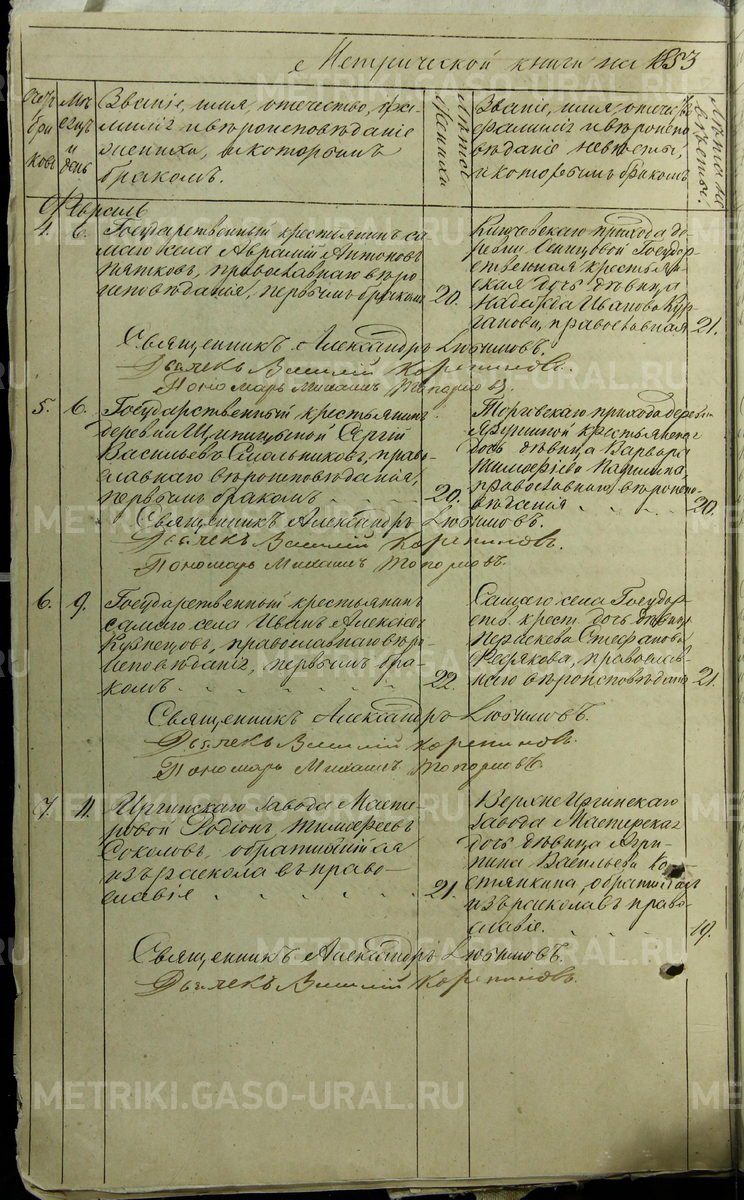 Метрической книги на 1853
Счетъ браковъ
Мѣсяцъ и день
Званіе, имя, отечество, фа-
милія и вѣроисповѣданіе
жениха, и которымъ
бракомъ.
Лѣта жениха
Званіе, имя, отечество
фамилія и вѣроиспо
вѣданіе невѣсты,
и которымъ бракомъ
Лѣта невѣсты.
Апрѣль
4. 6. Государственный крестьянинъ са-
маго села Аврамій Антоновъ
Пятковъ, православнаго вѣро
исповѣданія, первымъ бракомъ 20.
прихода де
ревни Государ-
ственная крестьян-
ская дочь дѣвица
Надежда Иванова Кур-
ганова, православная 21.
Священникъ Александръ Любимовъ.
Дьячекъ Василій Корепиновъ.
Пономарь Михаилъ Топорковъ.
5. 6. Государственный крестьянинъ
деревни Сергій
Васильевъ Смольниковъ, право-
славнаго вѣроисповѣданія,
первымъ бракомъ 20.
Торговскаго прихода деревни
крестьянская
дочь дѣвица Варвара
Тимофѣева
православнаго вѣроиспо-
вѣданія 20.
Священникъ Александръ Любимовъ.
Дьячекъ Василій Корепиновъ.
Пономарь Михаилъ Топорковъ.
6. 9. Государственный крестьянинъ
самаго села Иванъ Алексѣевъ
Кузнецовъ, православнаго вѣро
исповѣданія, первымъ бра-
комъ 22.
Самаго села Государ-
ств. крест. дочь дѣвица
Стефанова
православ-
наго вѣроисповѣданія 21.
Священникъ Александръ Любимовъ.
Дьячекъ Василій Корепиновъ.
Пономарь Михаилъ Топорковъ.
7. 11. Иргинскаго завода Масте-
ровой Родіонъ Тимофеевъ
Соколовъ, обратившійся
изъ раскола въ право-
славіе 21.
Верхне Иргинскаго
завода Мастерская
дочь дѣвица Агри-
пина Васильева
обратившаяся
изъ раскола въ право-
славіе. 19.
Священникъ Александръ Любимовъ.
Дьячекъ Василій Корепиновъ.
METRIKI.GASO-URAL.RU